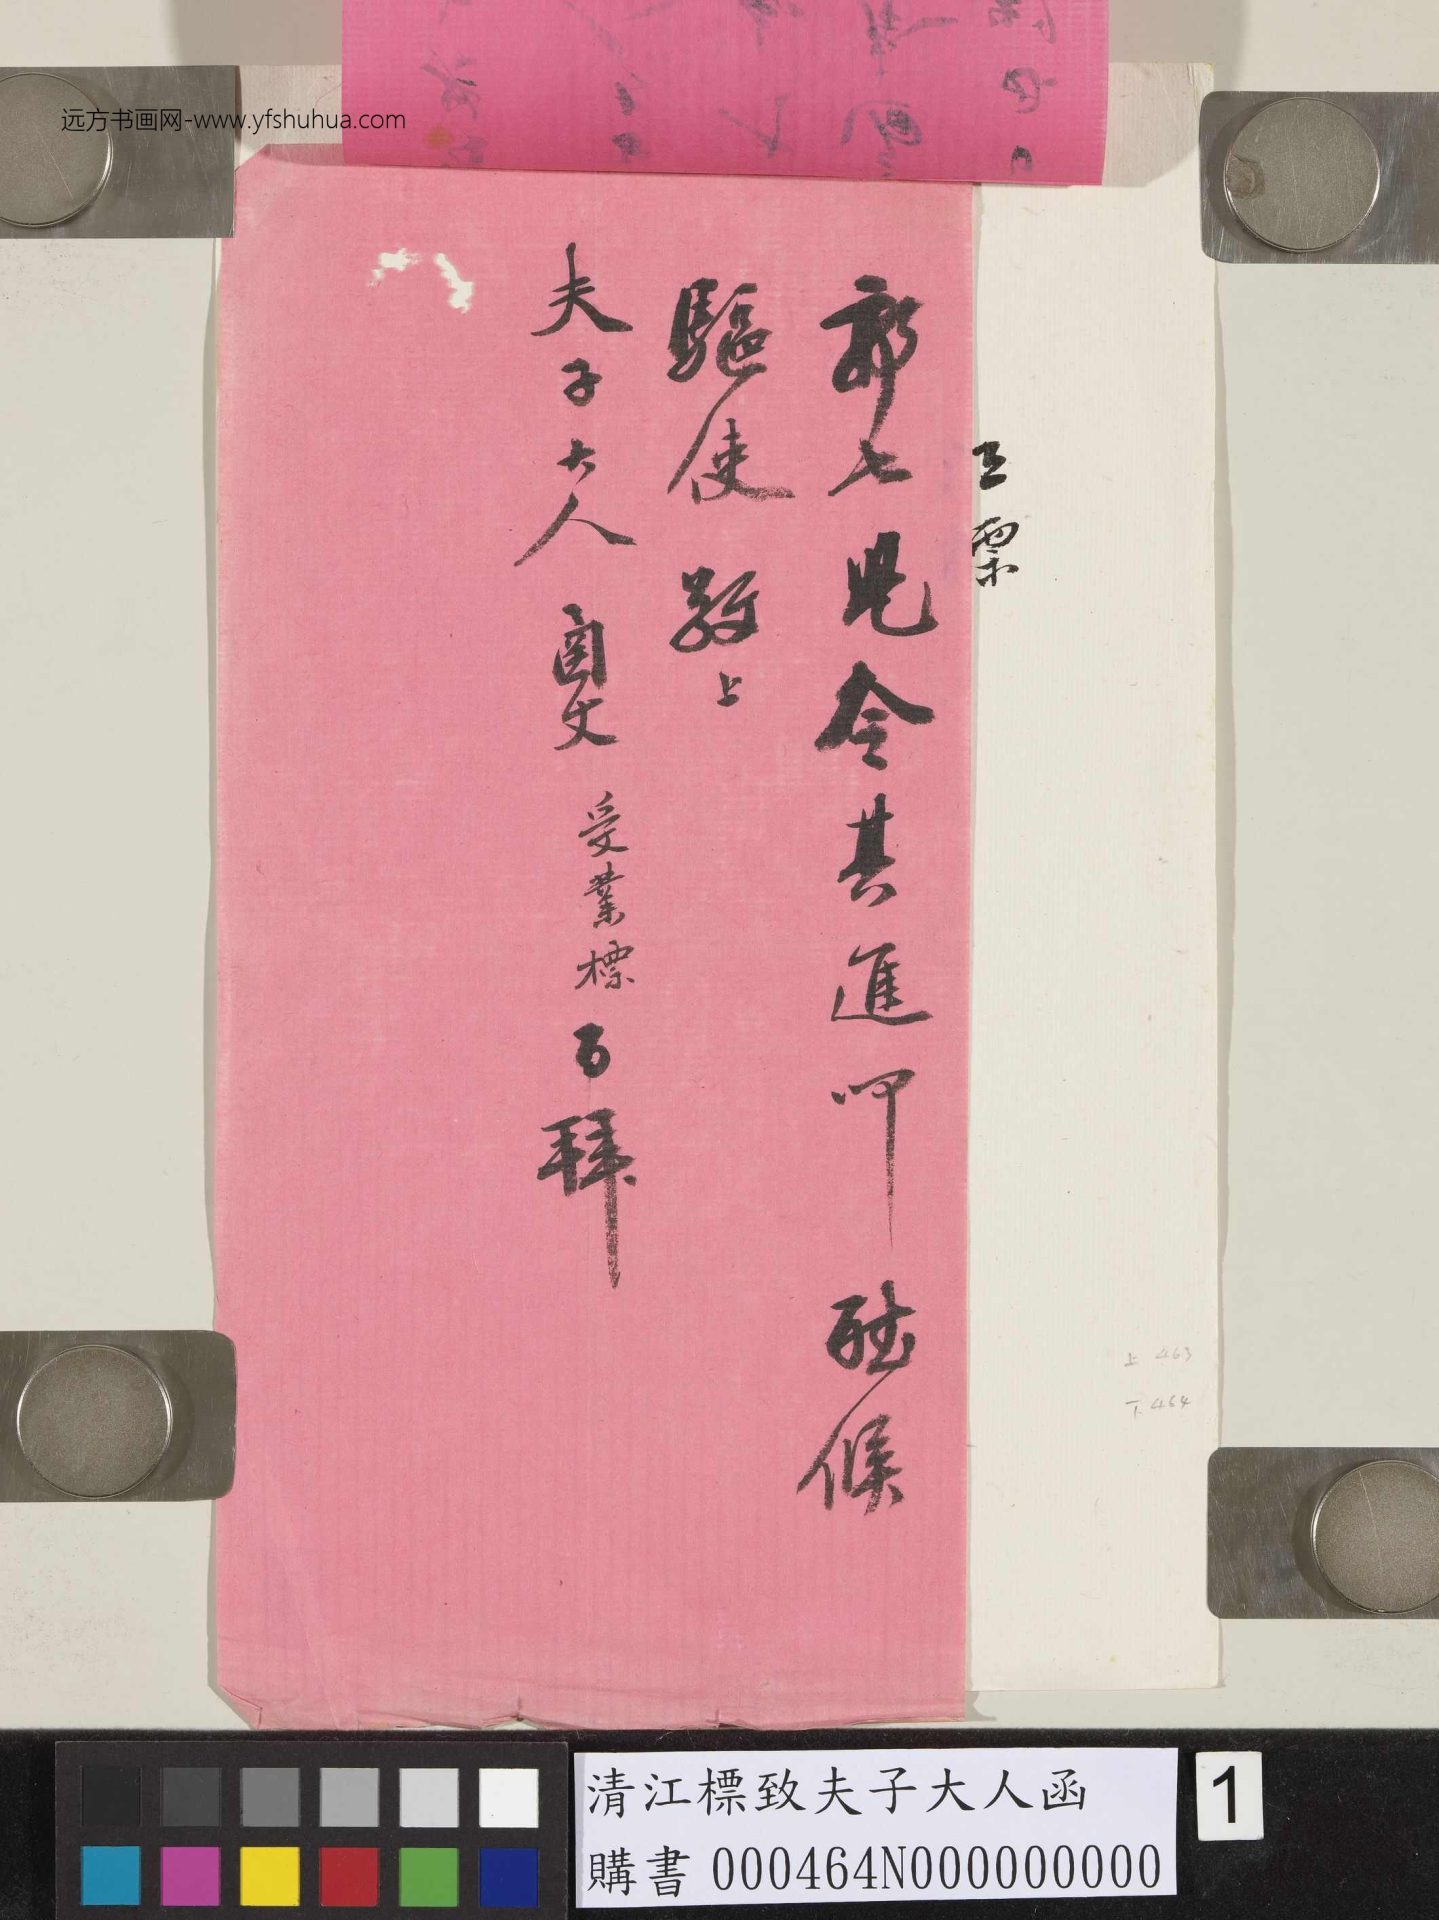 远方书画网-www.yfshuhua.com
郭七兄令其進叩 聽候
驅使 敬上
夫子大人 函丈 受業標 百拜
上 463
下 464
清江標致夫子大人函
購書 000464N000000000
1